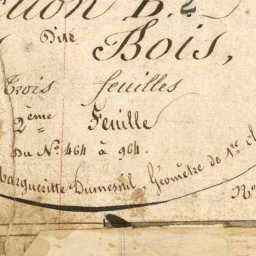 ction B.2
Dite Bois,
trois feuilles
2ème Feuille
Du No. 464 à 964.
Margueritte Dumesnil, Géomètre de 1re cl
No